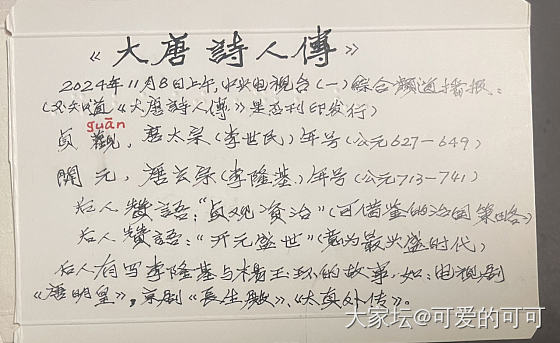 《大唐詩人傳》
2024年11月8日上午,中央电视台(一)綜合頻道播报:
(不知道《大唐詩人傳》是否刊印发行)
guān
貞觀,唐太宗(李世民)年号(公元627-649)
開元,唐玄宗(李隆基)年号(公元713-741)
后人贊語:“貞观資治”(可借鉴的治国策略)
后人贊語:“开元盛世”(竟为最兴盛时代)
后人有写李隆基与楊玉环的故事,如:电视剧
《唐明皇》,京剧《長生殿》、《太真外传》。
大家坛@可爱的可可